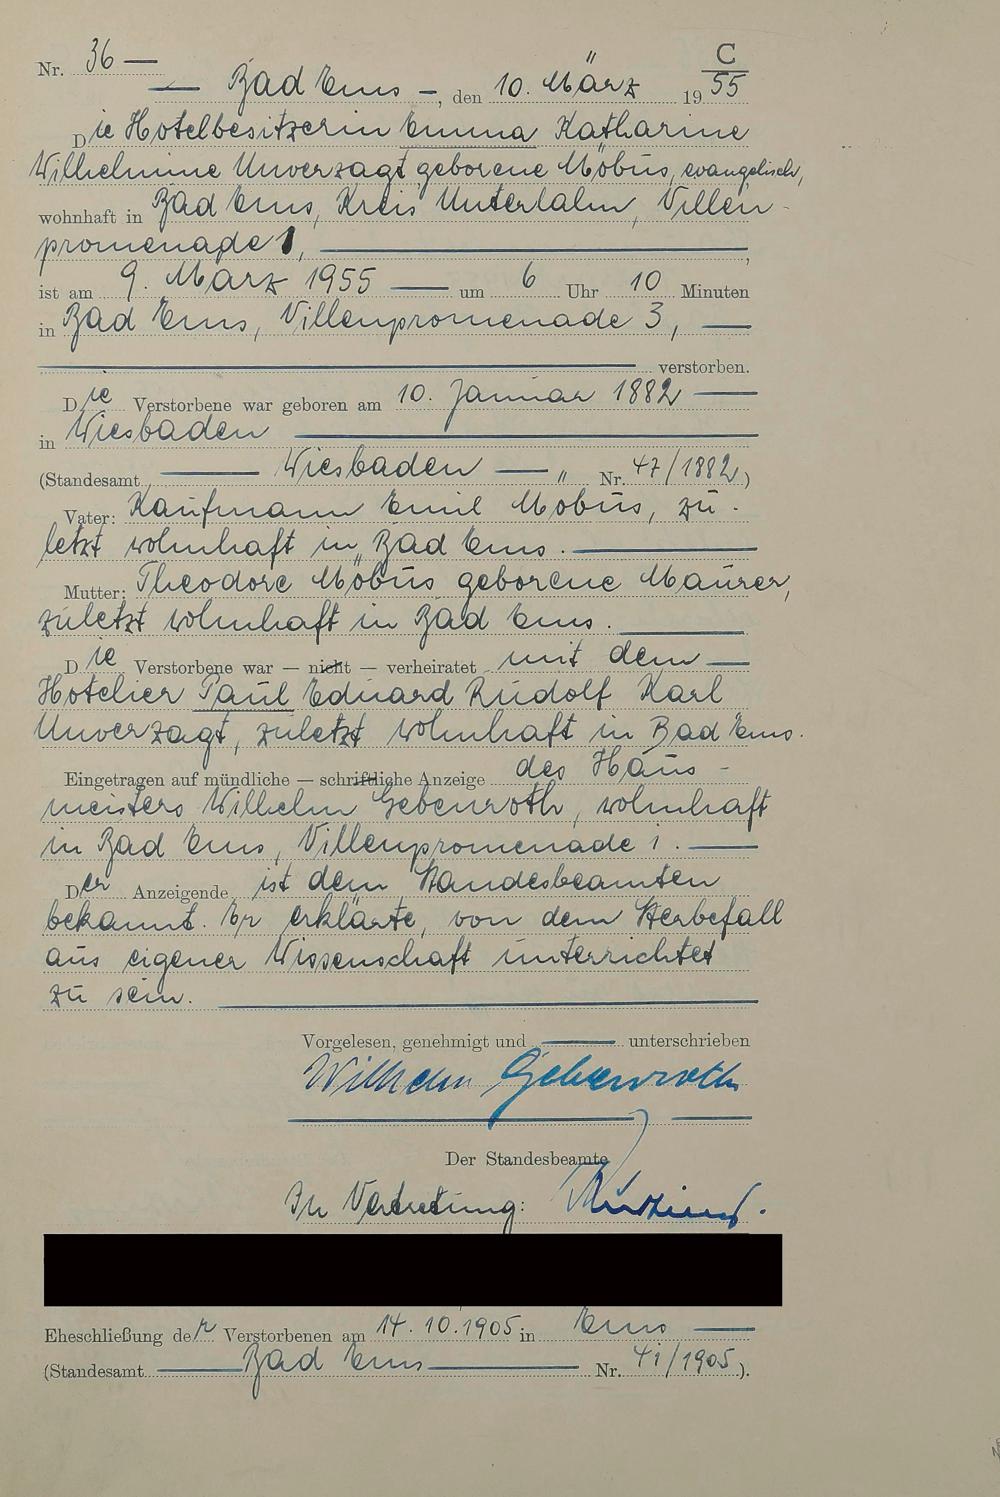 C
Nr. 36 —
— Bad Ems —, den 10. März 1955
Die Hotelbesitzerin Emma Katharine
Wilhelmine Unverzagt geborene Möbus, evangelisch,
wohnhaft in Bad Ems, Kreis Unterlahn, Villen-
promenade 1,
ist am 9. März 1955 — um 6 Uhr 10 Minuten
in Bad Ems, Villenpromenade 3, —
verstorben.
Die Verstorbene war geboren am 10. Januar 1882 —
in Wiesbaden —
(Standesamt — Wiesbaden — " Nr. 47/1882)
Vater: Kaufmann Emil Möbus, zu-
letzt wohnhaft in Bad Ems. —
Mutter: Theodore Möbus geborene Maurer,
zuletzt wohnhaft in Bad Ems. —
Die Verstorbene war — nicht — verheiratet mit dem —
Hotelier Paul Eduard Rudolf Karl
Unverzagt, zuletzt wohnhaft in Bad Ems.
Eingetragen auf mündliche — schriftliche Anzeige des Haus-
meisters Wilhelm Gebenroth, wohnhaft
in Bad Ems, Villenpromenade 1. —
Der Anzeigende ist dem Standesbeamten
bekannt. Er erklärte, von dem Sterbefall
aus eigener Wissenschaft unterrichtet
zu sein. —
Vorgelesen, genehmigt und — unterschrieben
Wilhelm Gebenroth
Der Standesbeamte
In Vertretung:
Eheschließung der Verstorbenen am 14.10.1905 in Ems —
(Standesamt — Bad Ems — Nr. 41/1905).